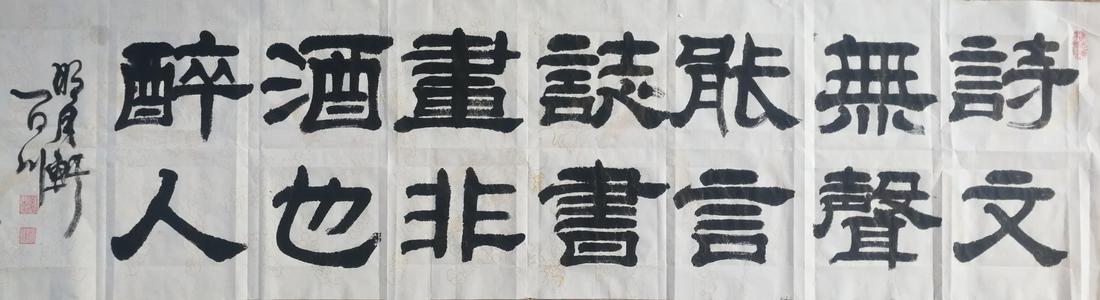 詩文
無聲
能言
誌書
畫非
酒也
醉人
明月軒
百川